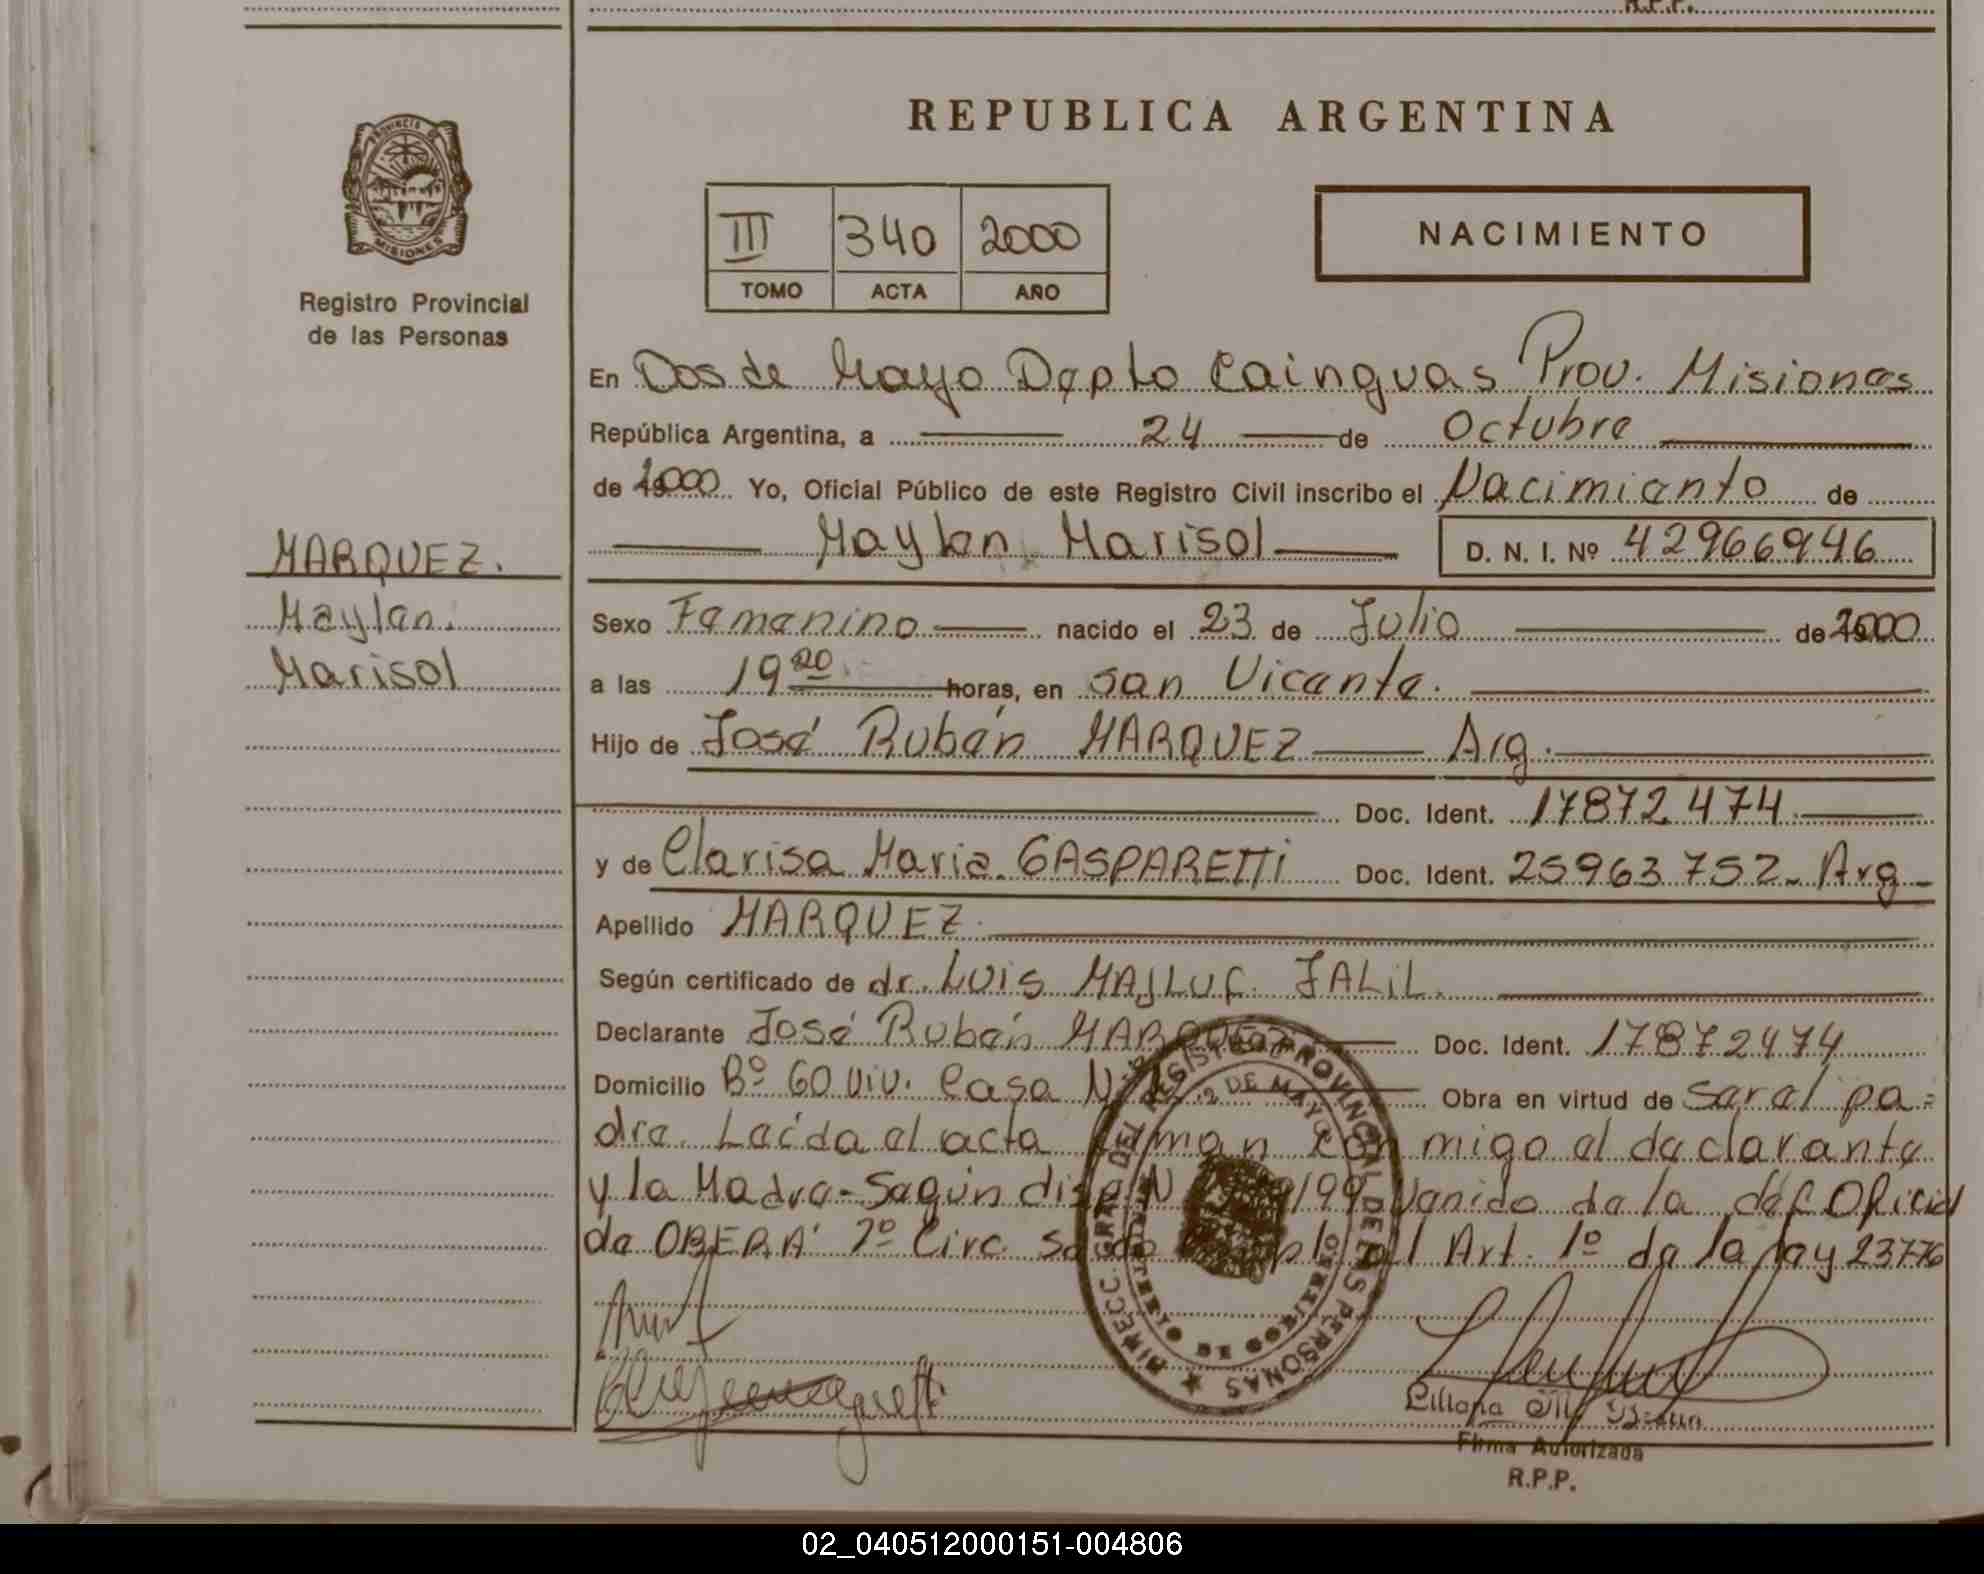 R.P.P.
REPUBLICA ARGENTINA
PROVINCIA DE MISIONES
Registro Provincial
de las Personas
III 340 2000
TOMO ACTA AÑO
NACIMIENTO
En Dos de Mayo Depto Cainguas Prov. Misiones
República Argentina, a 24 de Octubre
de 2000 Yo, Oficial Público de este Registro Civil inscribo el Nacimiento de
Maylen Marisol D. N. I. Nº 42966946
MARQUEZ.
Maylen.
Marisol
Sexo Femenino nacido el 23 de Julio de 2000
a las 19 20 horas, en San Vicente.
Hijo de José Rubén MARQUEZ Arg.
Doc. Ident. 17872.474
y de Clarisa Maria. GASPARETTi Doc. Ident. 25963752- Arg
Apellido MARQUEZ.
Según certificado de dr. LUiS MAJLUF. JALiL.
Declarante José Rubén MARQUEZ Doc. Ident. 17872474
Domicilio Bº 60 Viv. Casa Nº Obra en virtud de ser el pa=
dre. Leída el acta firman conmigo el declarante
y la Madre- Según disp. N /99 Venido de la def Oficial
de OBERÁ 2º Circ. Art. 1º de la ley 23776
DIRECC. GRAL. DEL REGISTRO PROVINCIAL DE LAS PERSONAS
2 DE MAYO
MISIONES
Firma Autorizada
R.P.P.
02_040512000151-004806